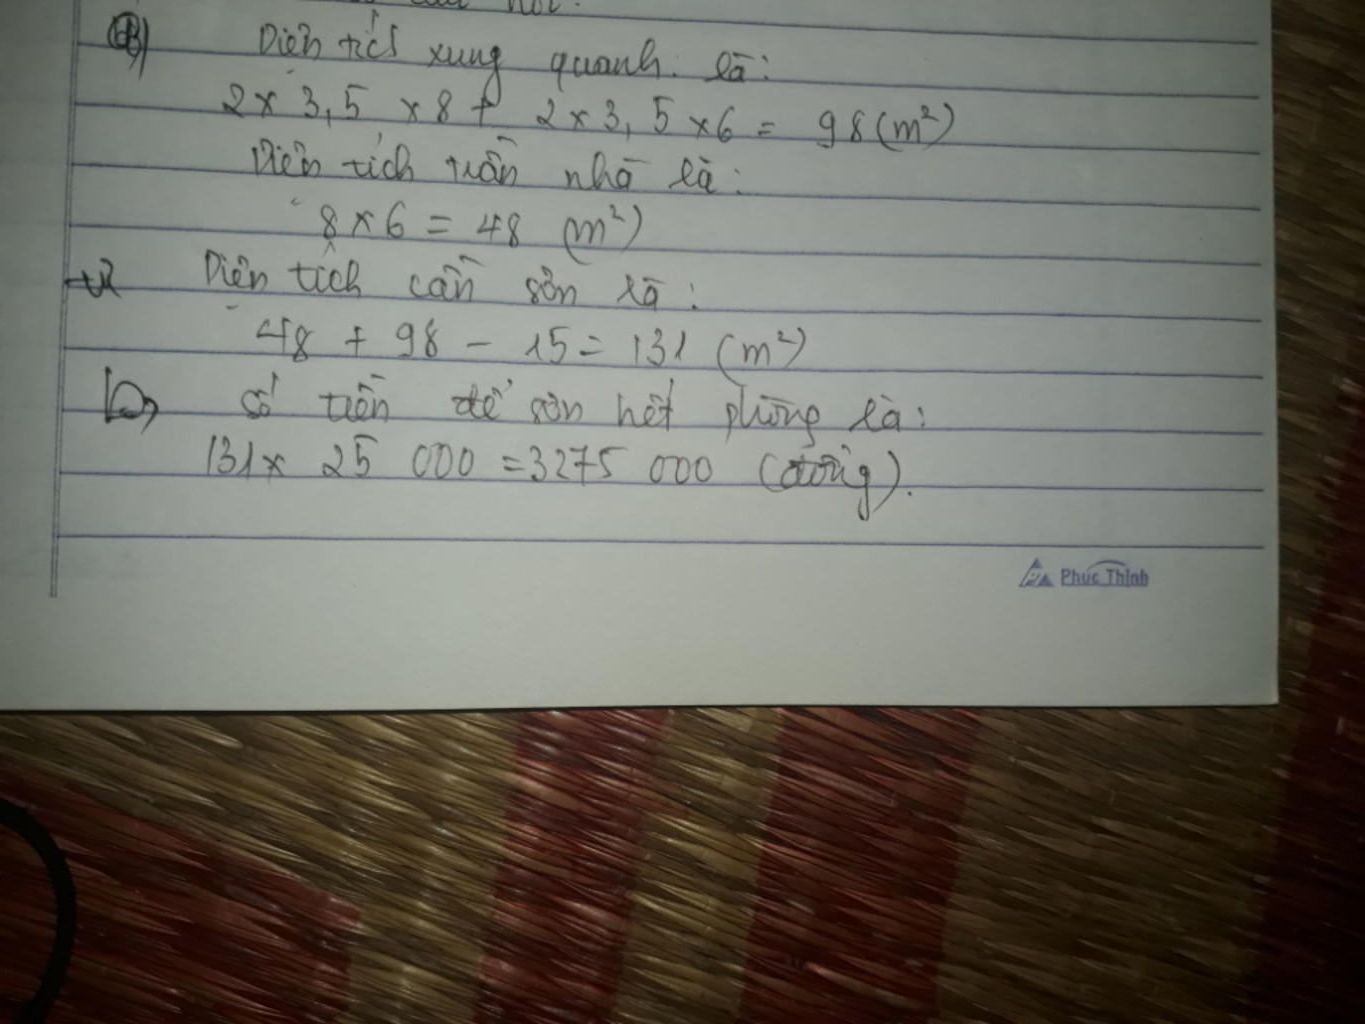 Diện tích xung quanh là:
2 x 3,5 x 8 + 2 x 3,5 x 6 = 98 (m²)
Diện tích trần nhà là:
8 x 6 = 48 (m²)
Diện tích cần sơn là:
48 + 98 - 15 = 131 (m²)
b, Số tiền để sơn hết phòng là:
131 x 25 000 = 3275 000 (đồng).
Phuc Thinh